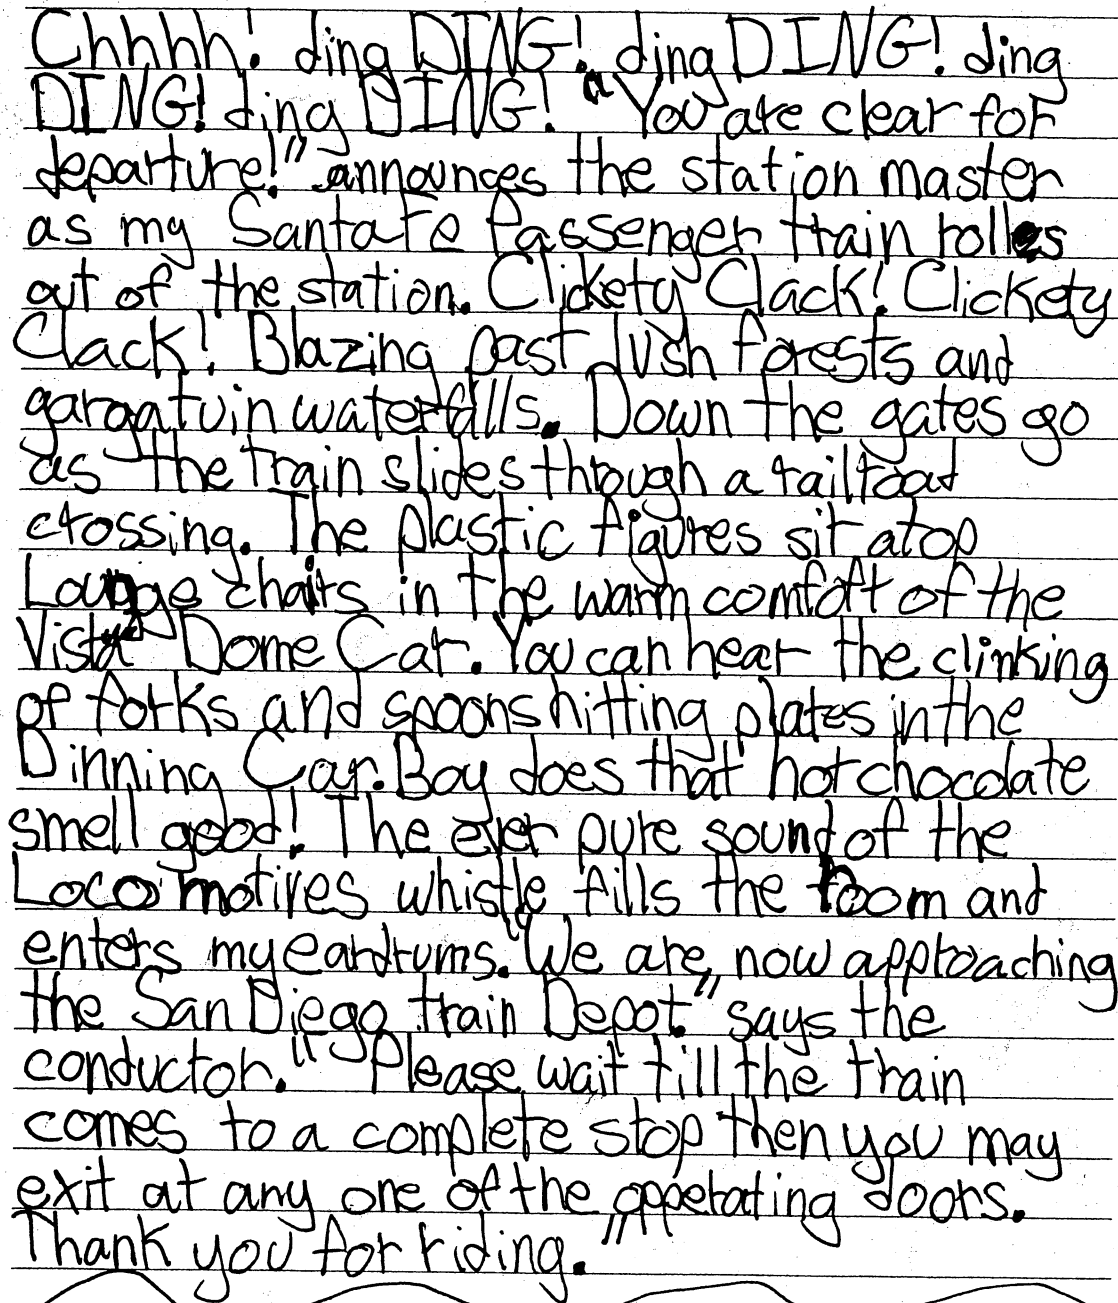 Chhhh! ding DING! ding DING! ding
DING! ding DING! "You are clear for
departure!" announces the station master
as my Santa Fe Passenger train rolles
out of the station. Clickety Clack! Clickety
Clack! Blazing past lush forests and
gargatuin waterfalls. Down the gates go
as the train slides through a railroad
crossing. The plastic figures sit atop
Lounge chairs in the warm comfort of the
Vista Dome Car. You can hear the clinking
of forks and spoons hitting plates in the
Dinning Car. Boy does that hot chocolate
smell good! The ever pure sound of the
Locomotives whistle fills the room and
enters my eardrums. "We are now approaching
the San Diego train Depot" says the
conductor. "Please wait till the train
comes to a complete stop then you may
exit at any one of the opperating doors.
Thank you for riding."